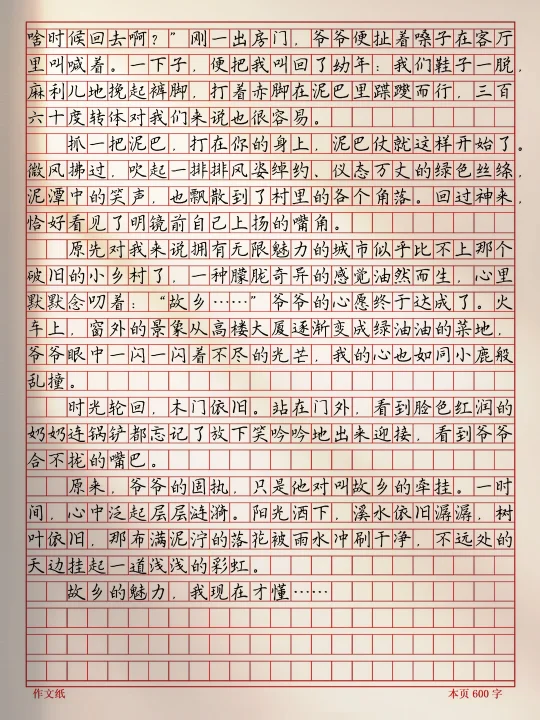 啥时候回去啊？”刚一出房门，爷爷便扯着嗓子在客厅
里叫喊着。一下子，便把我叫回了幼年：我们鞋子一脱，
麻利儿地挽起裤脚，打着赤脚在泥巴里蹀躞而行，三百
六十度转体对我们来说也很容易。
抓一把泥巴，打在你的身上，泥巴仗就这样开始了。
微风拂过，吹起一排排风姿绰约、仪态万丈的绿色丝绦，
泥潭中的笑声，也飘散到了村里的各个角落。回过神来，
恰好看见了明镜前自己上扬的嘴角。
原先对我来说拥有无限魅力的城市似乎比不上那个
破旧的小乡村了，一种朦胧奇异的感觉油然而生，心里
默默念叨着：“故乡……”爷爷的心愿终于达成了。火
车上，窗外的景象从高楼大厦逐渐变成绿油油的菜地，
爷爷眼中一闪一闪着不尽的光芒，我的心也如同小鹿般
乱撞。
时光轮回，木门依旧。站在门外，看到脸色红润的
奶奶连锅铲都忘记了放下笑吟吟地出来迎接，看到爷爷
合不拢的嘴巴。
原来，爷爷的固执，只是他对叫故乡的牵挂。一时
间，心中泛起层层涟漪。阳光洒下，溪水依旧潺潺，树
叶依旧，那布满泥泞的落花被雨水冲刷干净，不远处的
天边挂起一道浅浅的彩虹。
故乡的魅力，我现在才懂……
作文纸 本页 600 字